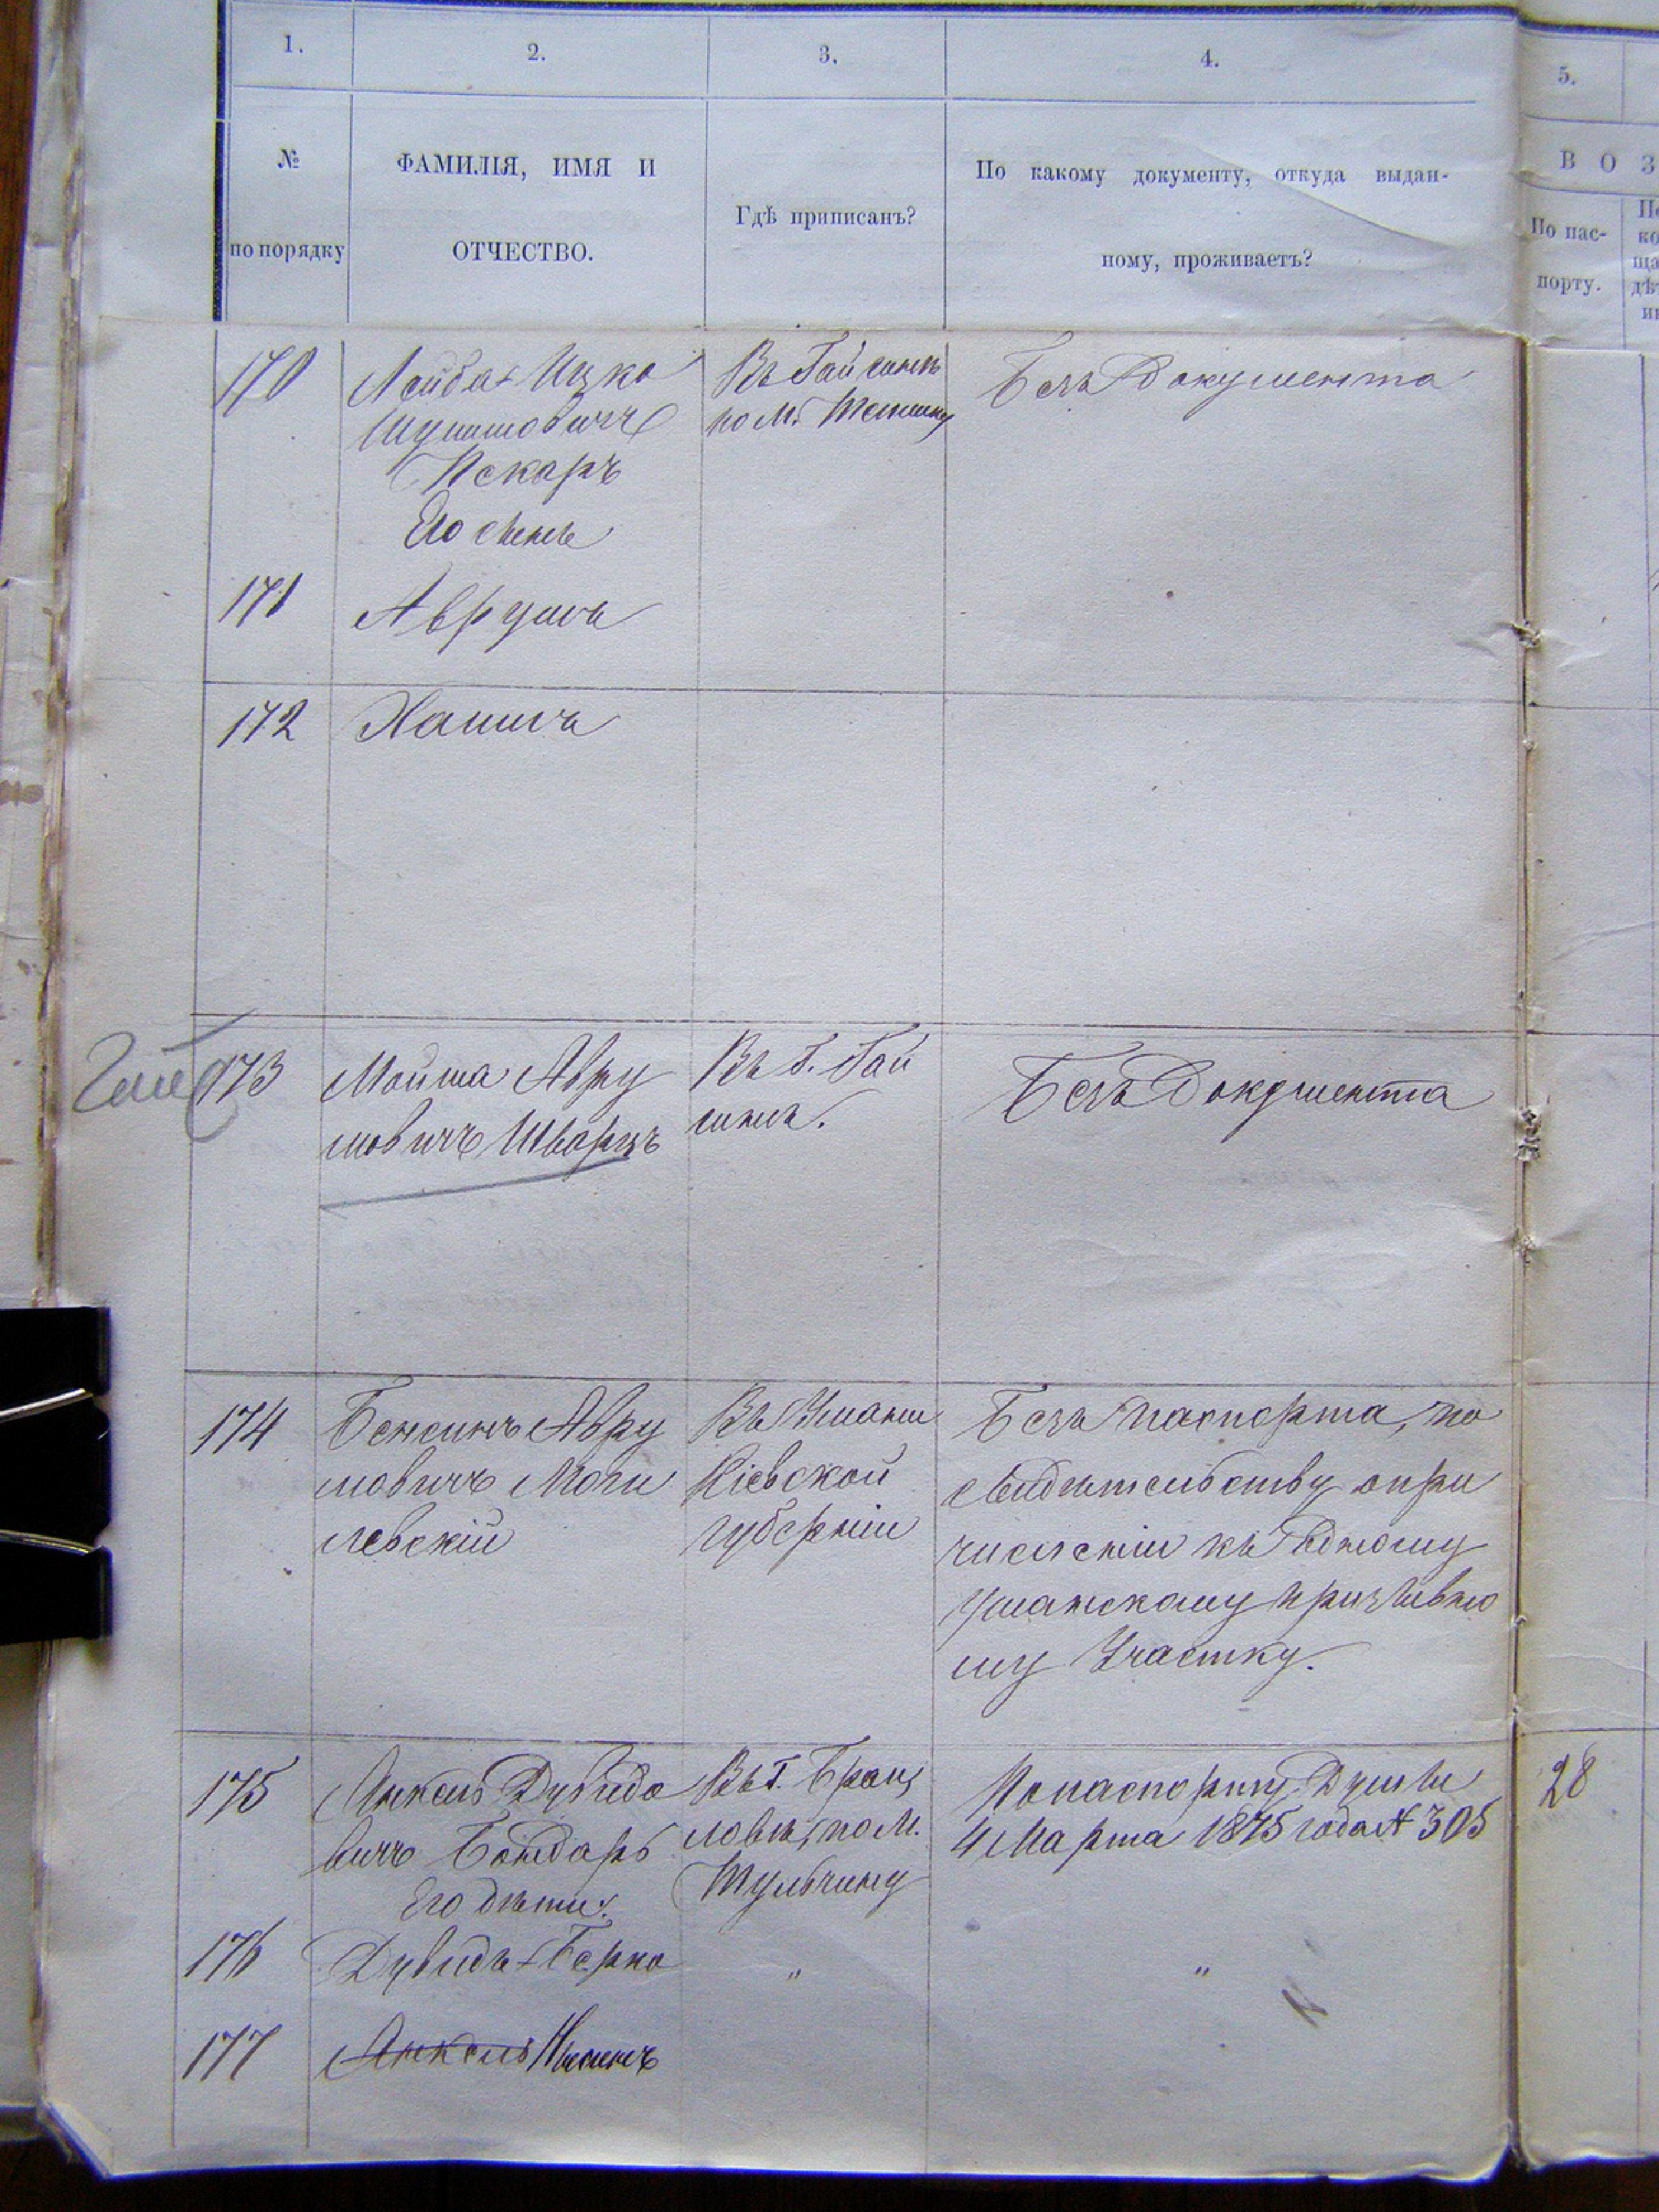 1.
2.
3.
4.
5.
№
по порядку
ФАМИЛІЯ, ИМЯ И
ОТЧЕСТВО.
Гдѣ приписанъ?
По какому документу, откуда выдан-
ному, проживаетъ?
В О З
По пас-
порту.
170
Лейба-Ицко
Пекаръ
Его сынъ
Въ Гайсинѣ
по М.
Безъ документа
171
Аврумъ
172
Хаимъ
Гайс
173
Мойша Авру
мовичъ Шварцъ
Въ Г. Гай
синѣ.
Безъ Документа
174
Бенсинъ Авру
мовичъ Моги
левскій
Въ Умани
Кіевской
губерніи
Безъ паспорта, по
свидѣтельству опри
численіи къ
Уманскому призывно
му Участку.
175
Анкель Дувидо
вичъ Бондарь
Его дѣти:
Въ Г. Брац
лавѣ, по М.
Тульчину
По паспорту Думы
4 Марта 1875 года № 305
28
176
Дувидъ-Берко
"
"
177
Анкель